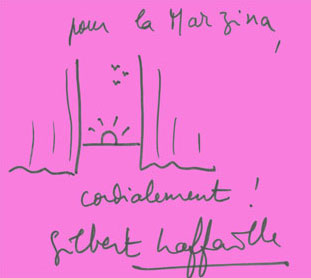 pour la Marzina,
cordialement !
Gilbert Laffaille